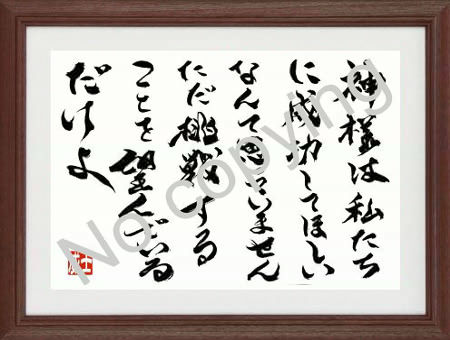 神様は私たち
に成功してほしい
なんて思っていません
ただ挑戦する
ことを望んでいる
だけよ
No copying